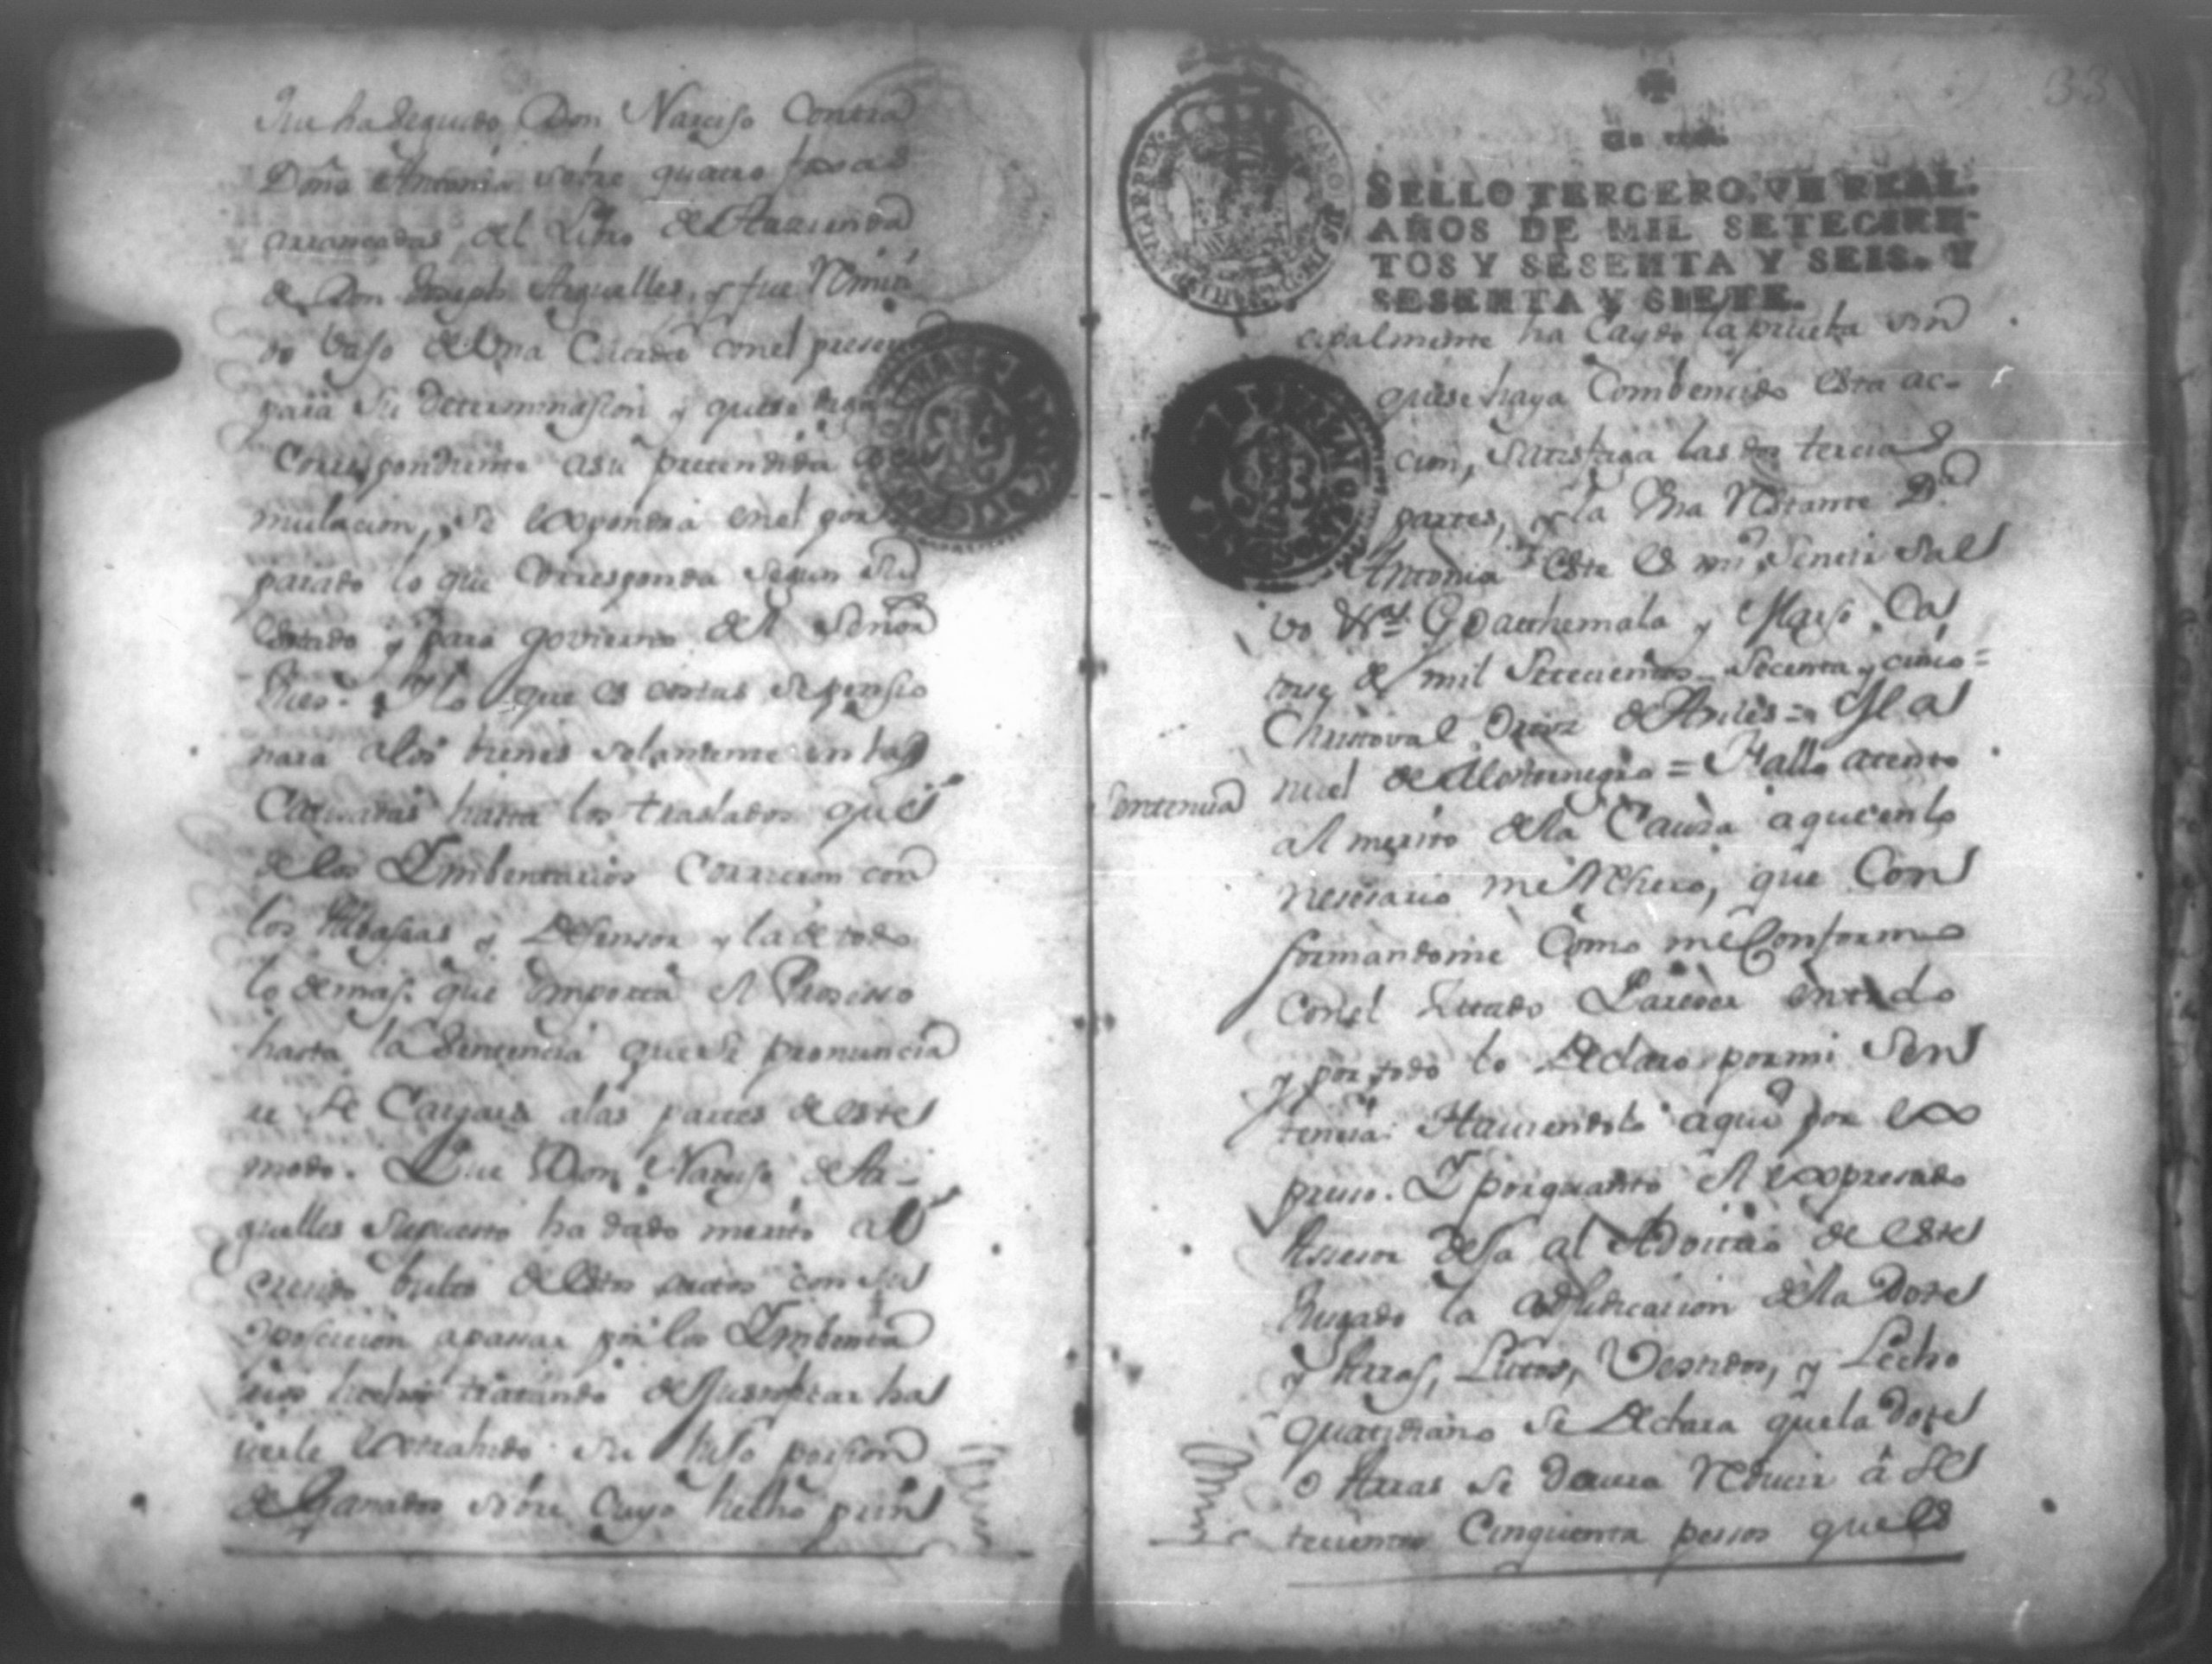 Que ha seguido Don Narciso Contra
Doña Antonia sobre quatro foxas
arrancadas del Libro de Hazienda
de Don Joseph Arguelles, y fue
do baso de una Cuerda con el presen
para su determinasion y que se diga
Correspondiente a su pretendida acu
mulacion, se le expondra en el por se
parado lo que Corresponda segun su
Estado y para govierno del Señor
Jues. Y lo que es costas se pensio
nara a los bienes solamente en las
Causadas hasta los traslados que
de los Ymbentarios Corrieron con
los Albaseas y Defensor y la de todo
lo demas que importa el Prosesso
hasta la Sentencia que se pronuncia
re se Cargara a las partes de este
modo. Que Don Narciso de Ar-
guelles supuesto ha dado merito al
cresido bulto de estos autos con su
oposicion a passar por los Ymbenta
rios hechos tratando de justificar ha
verle extrahido su hijo porsion
de Ganados sobre cuyo hecho prin
33
SELLO TERCERO, VN REAL.
AÑOS DE MIL SETECIEN-
TOS Y SESENTA Y SEIS. Y
SESENTA Y SIETE.
cipalmente ha Caydo la prueba sin
que se haya Combencido esta ac-
cion, satisfaga las dos tercias
partes, y la una restante Da
Antonia este es mi sentir sal
vo &ra. Goathemala y Marso Ca
torse de mil setecientos secenta y cinco=
Christoval Ortiz de Aviles = Ma
Sentencia
nuel de Montenegro = Fallo atento
al merito de la Causa a que en lo
nesesario me refiero, que Con
formandome Como me Conformo
con el citado Pareser en todo
y por todo lo Declaro por mi Sen
tencia Haciendolo aqui por ex
preso. Y por quanto el expresado
Assesor desa al Advitrio de este
Jusgado la adjudicacion de la Dote
y Arras, Lutos, Vestidos, y Lecho
quotidiano se Declara que la Dote
o Arras se devera reducir â se
tecientos Cinquenta pessos que es